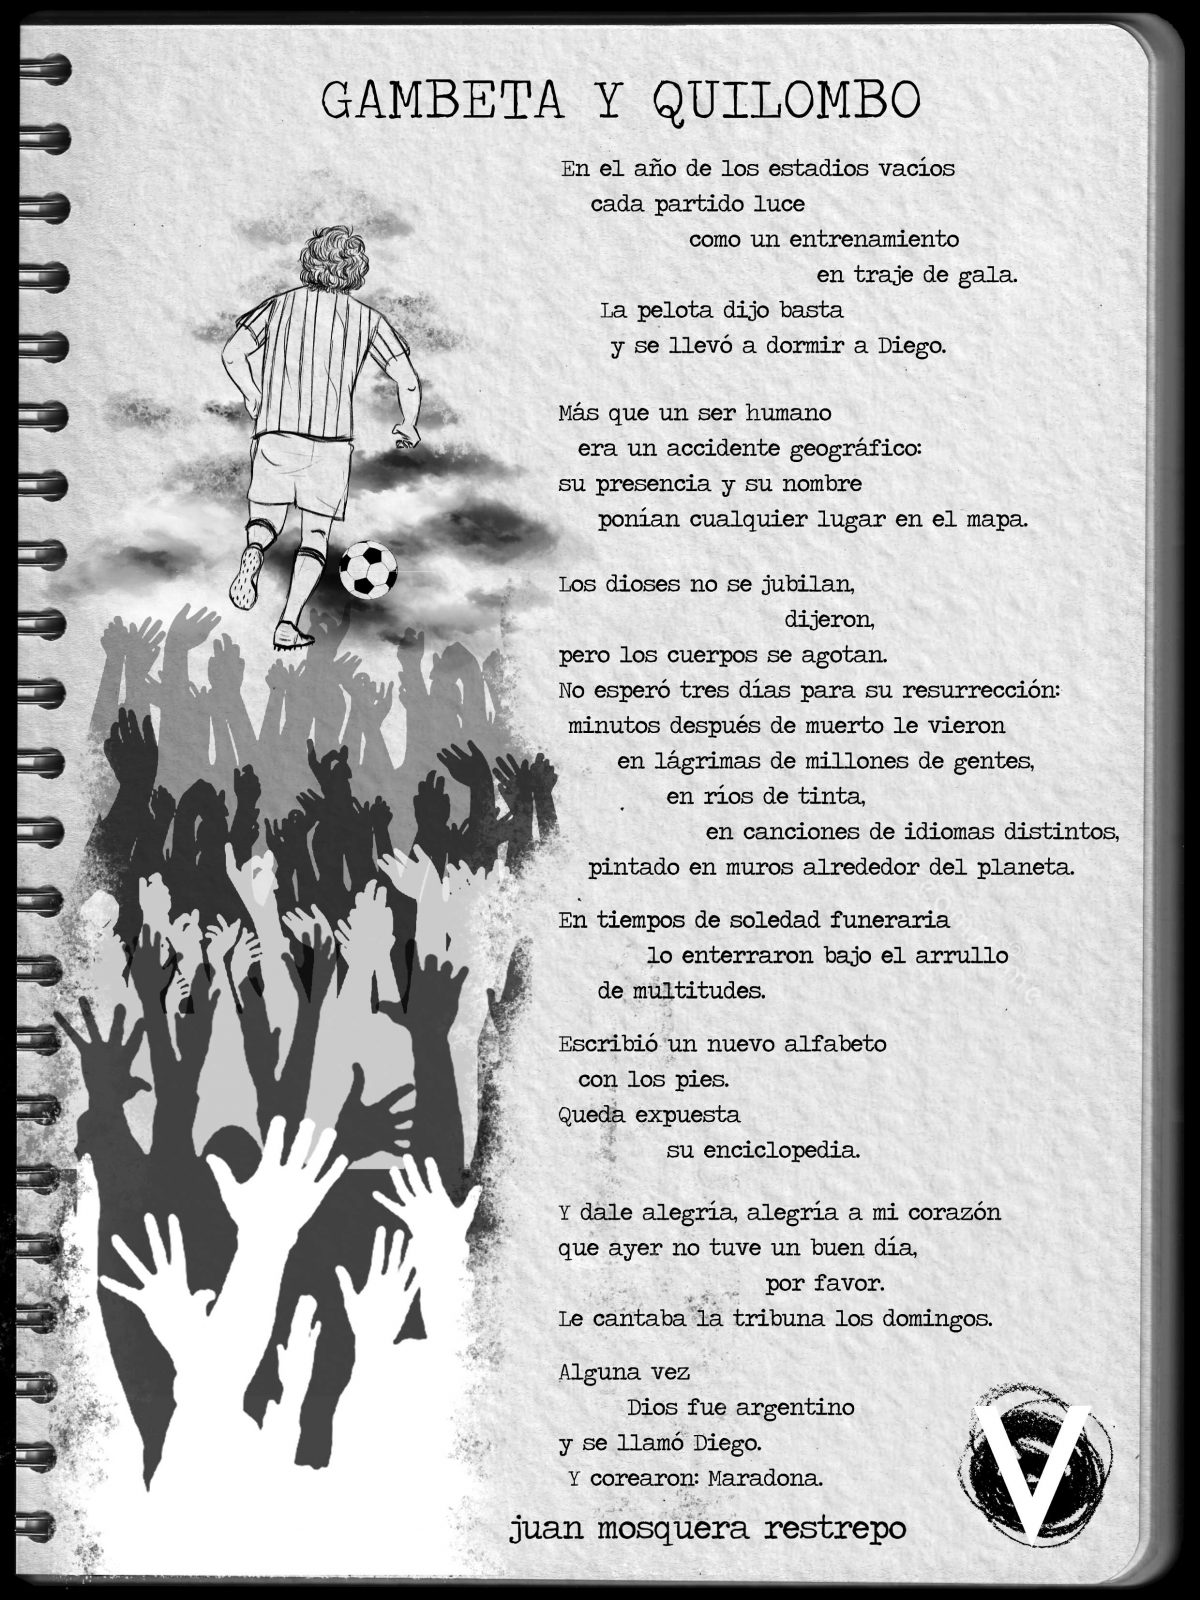 GAMBETA Y QUILOMBO
En el año de los estadios vacíos
cada partido luce
como un entrenamiento
en traje de gala.
La pelota dijo basta
y se llevó a dormir a Diego.
Más que un ser humano
era un accidente geográfico:
su presencia y su nombre
ponían cualquier lugar en el mapa.
Los dioses no se jubilan,
dijeron,
pero los cuerpos se agotan.
No esperó tres días para su resurrección:
minutos después de muerto le vieron
en lágrimas de millones de gentes,
en ríos de tinta,
en canciones de idiomas distintos,
pintado en muros alrededor del planeta.
En tiempos de soledad funeraria
lo enterraron bajo el arrullo
de multitudes.
Escribió un nuevo alfabeto
con los pies.
Queda expuesta
su enciclopedia.
Y dale alegría, alegría a mi corazón
que ayer no tuve un buen día,
por favor.
Le cantaba la tribuna los domingos.
Alguna vez
Dios fue argentino
y se llamó Diego.
Y corearon: Maradona.
juan mosquera restrepo
V